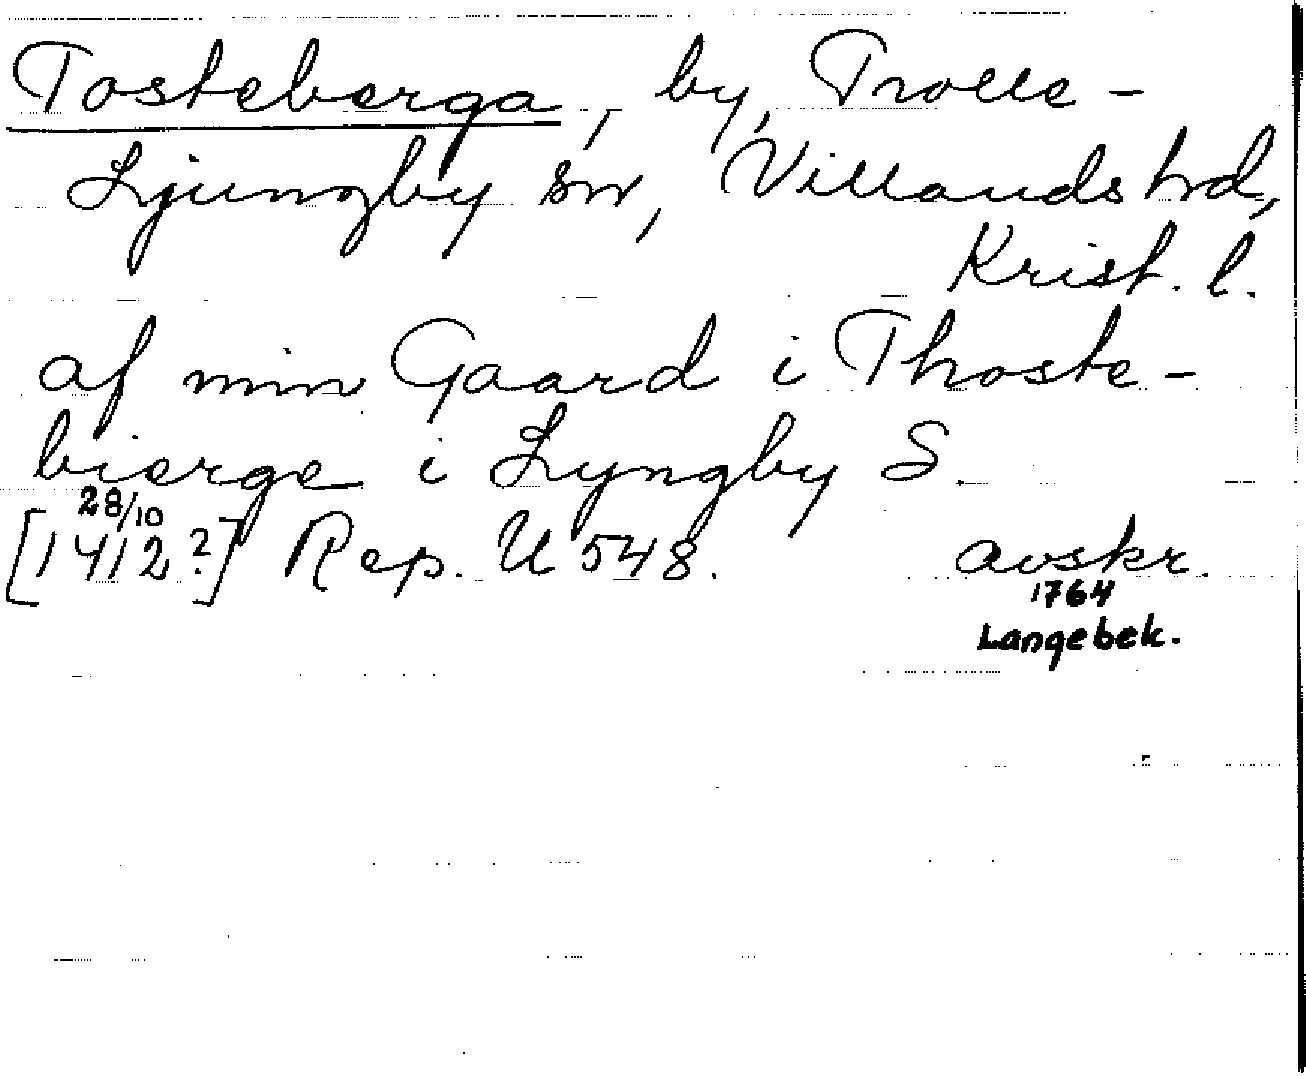 Tosteberga, by, Trolle-
Ljungby sn, Villands hd,
Krist. l.
af min Gaard i Thoste-
bierge i Lyngby S.
28/10
[1412?] Rep. U 548. avskr.
1764
Langebek.